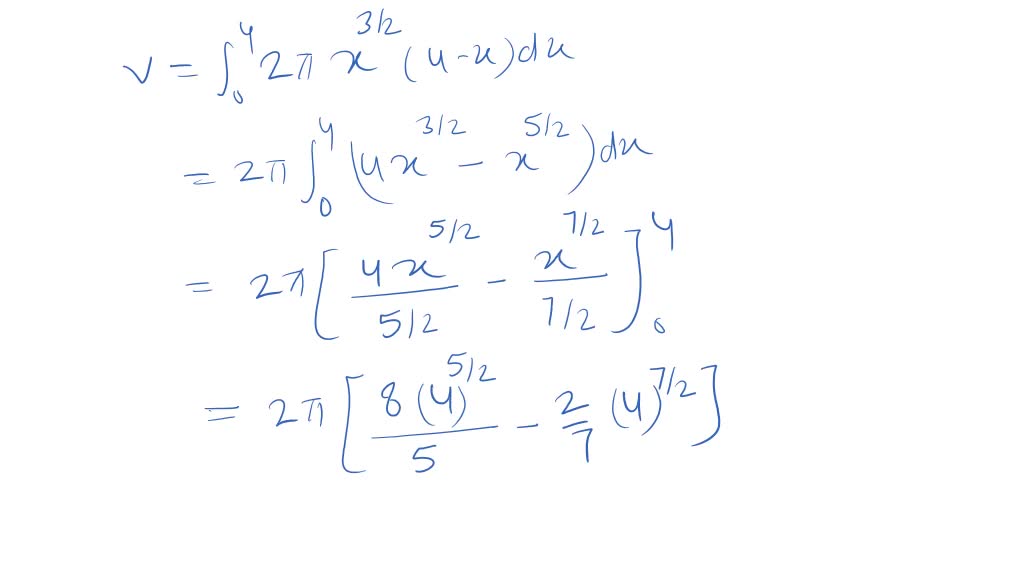 V = ∫₀⁴ 2π x^{3/2} (4-x)dx
= 2π ∫₀⁴ (4x^{3/2} - x^{5/2})dx
= 2π [ 4x^{5/2} / 5/2 - x^{7/2} / 7/2 ]₀⁴
= 2π [ 8(4)^{5/2} / 5 - 2/7 (4)^{7/2} ]